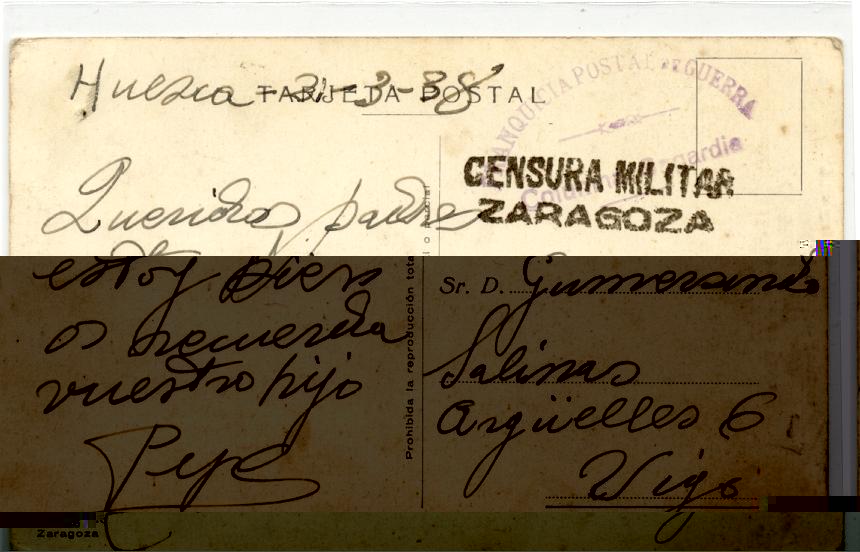 Huesca - 31-3-38
TARJETA POSTAL
FRANQUICIA POSTAL DE GUERRA
CENSURA MILITAR
ZARAGOZA
Queridos padres
estoy bien
os recuerda
vuestro hijo
Pepe
Prohibida la reproducción total o parcial
Sr. D. Gumersindo
Salinas
Argüelles 6
Vigo
Zaragoza